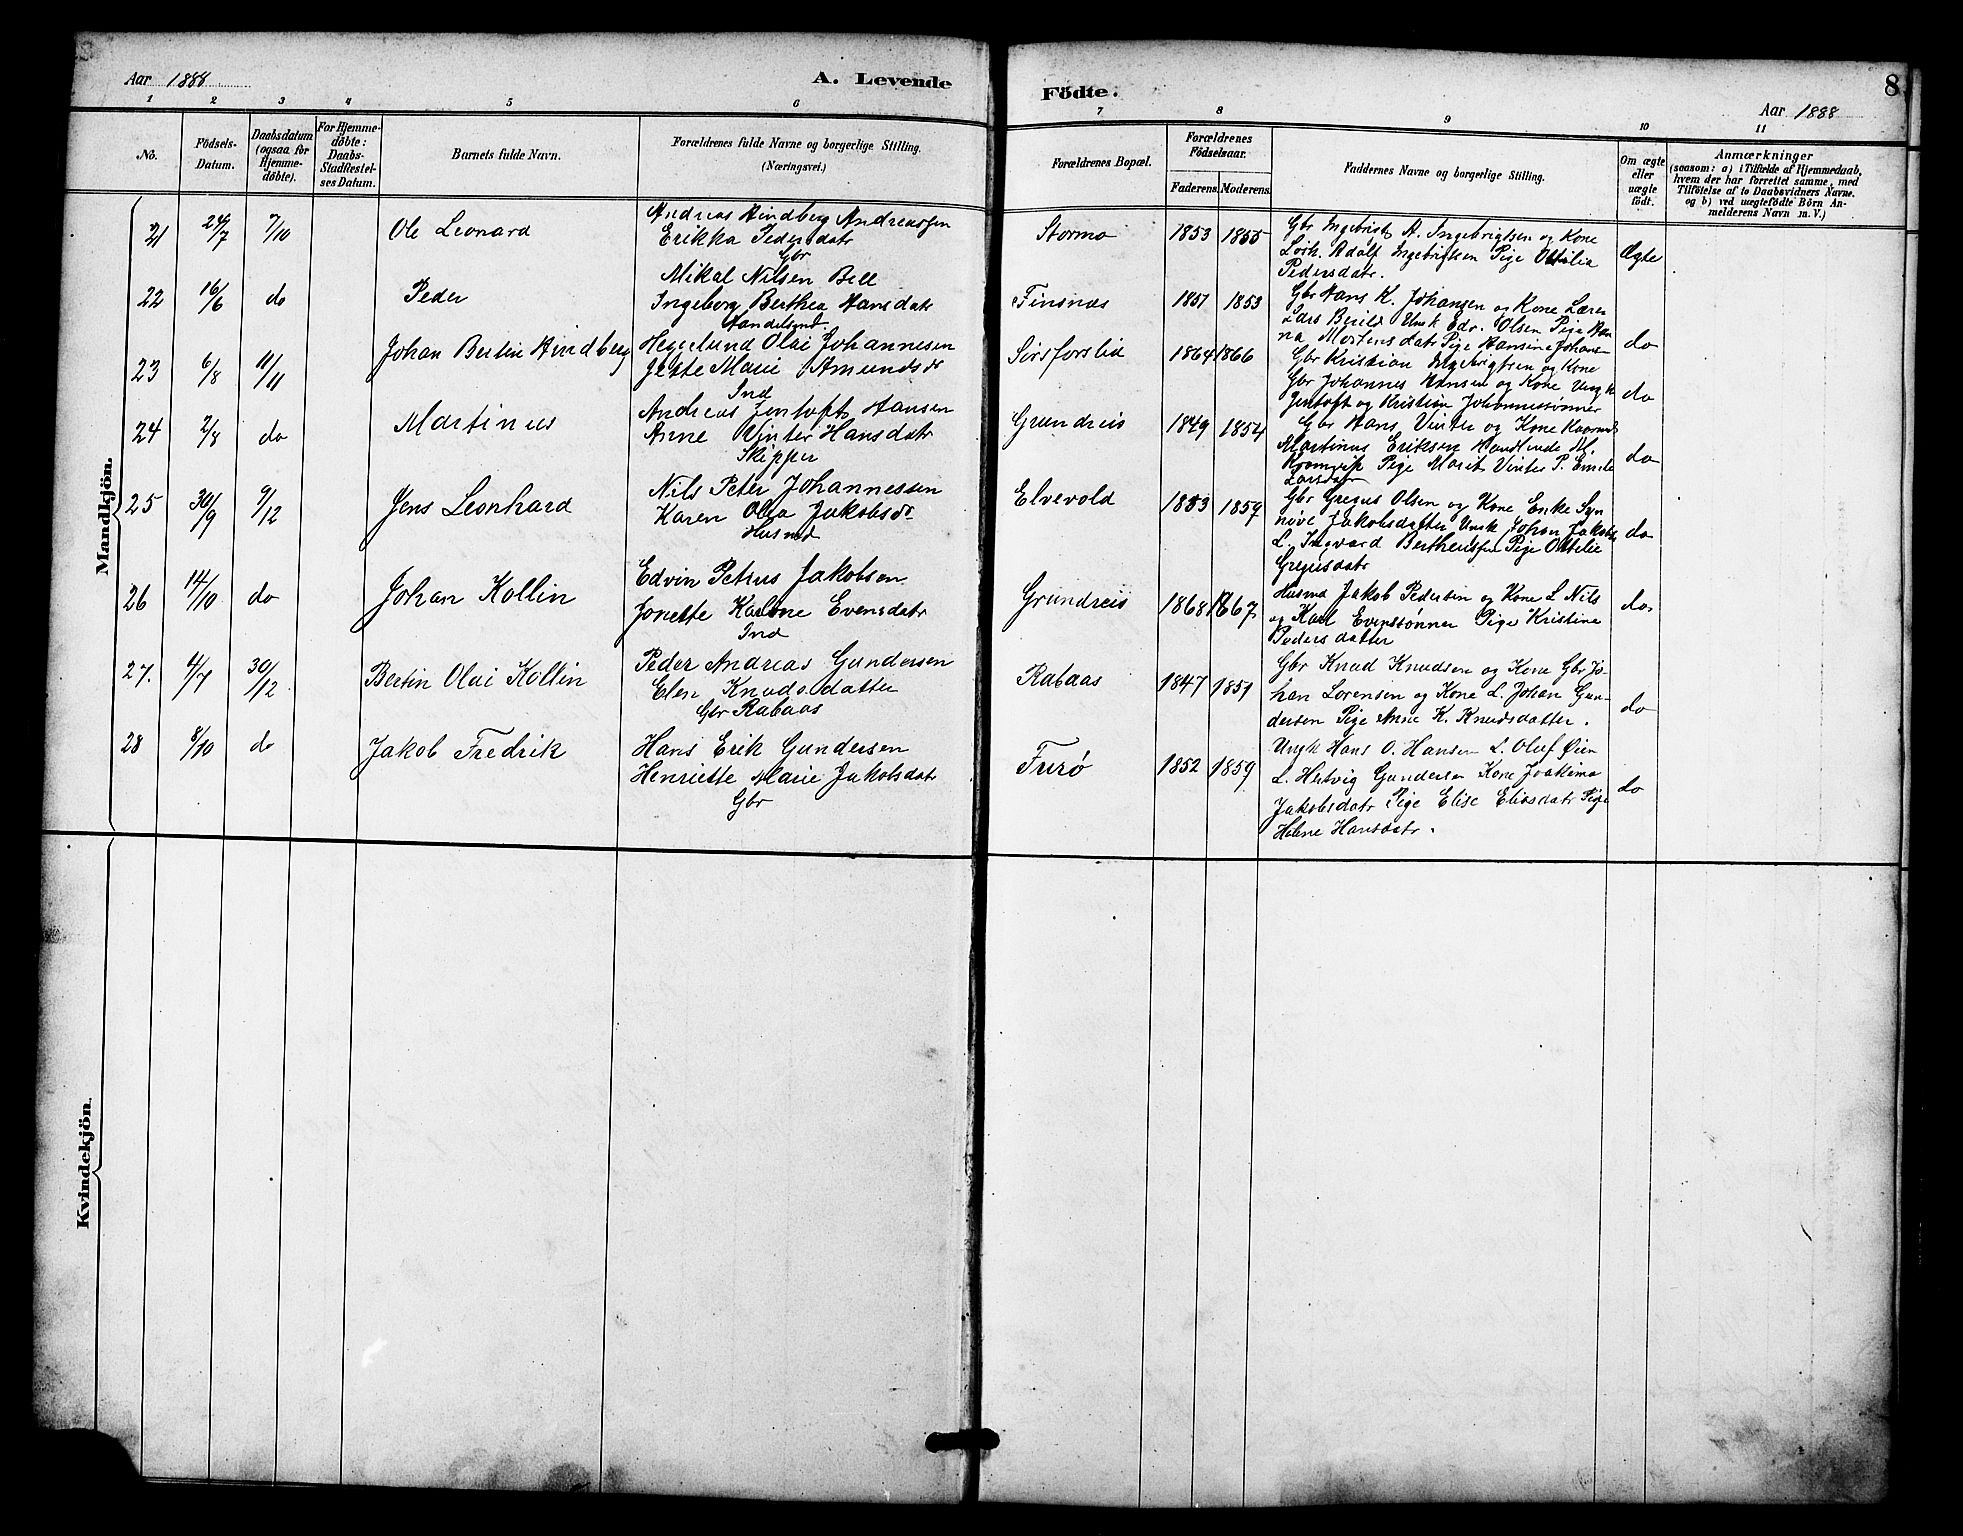 Aar 1888
A. Levende
Födte.
Aar 1888
8
1 2 3 4 5 6 7 8 9 10 11
No.
Födsels-Datum.
Daabsdatum (ogsaa for Hjemmedöbte).
For Hjemmedöbte: Daabs-Stadfæstelses Datum.
Barnets fulde Navn.
Forældrenes fulde Navne og borgerlige Stilling.
(Næringsvei.)
Forældrenes Bopæl.
Forældrenes Födselsaar.
Faderens. Moderens.
Faddernes Navne og borgerlige Stilling.
Om ægte eller uægte født.
Anmærkninger
(saasom: a) i Tilfælde af Hjemmedaab,
hvem der har forrettet samme, med
Tilföielse af to Daabsvidners Navne.
og b) ved uægtefödte Börn An-
melderens Navn m. V.)
Mandkjön.
21 24/7 7/10 Ole Leonard
Andreas Hindberg Andreassen
Erikka Pedersdatr
Gbr
Stormo 1853 1855
Gbr Ingebrigt A. Ingebrigtsen og Kone
Losh. Adolf Ingebrigtsen Pige Ottilia
Pedersdatr.
Ægte
22 16/6 do Peder
Mikal Nilsen Bell
Ingeborg Berthea Hansdatr
Handelsmd
Finsnæs 1851 1853
Gbr Hans K. Johansen og Kone Lærer
Lars Berild Ungk Edr. Olsen Pige Han
na Mortensdatr Pige Hansine Johans
do
23 6/8 11/11 Johan Bertin Hindberg
Hegelund Olai Johannesen
Jette Marie Amundsdr
Ind
Sörsforslid 1864 1866
Gbr Kristian Ingebrigtsen og Kone
Gbr Johannes Hansen og Kone Ungk
Jentoft og Kristian Johannessønner
do
24 2/8 do Martinus
Andreas Jentoft Hansen
Anne Vinter Hansdatr
Skipper
Grundreis 1849 1854
Gbr Hans Vinter og Kone
Martinus Eriksen
Pige Marit Vinter P. Emelie
Larsdatr
do
25 30/9 9/12 Jens Leonhard
Nils Peter Johannessen
Karen Olea Jakobsdr
Husmd
Elvevold 1853 1859
Gbr Gregus Olsen og Kone Enke Syn
növe Jakobsdatter Ungk Johan Jakobs
L. Ingvard Bertheussen Pige Ottilie
Gregusdatr
do
26 14/10 do Johan Kollin
Edvin Petrus Jakobsen
Jonette Karline Evensdatr
Ind
Grundreis 1868 1867
Husmd Jakob Pedersen og Kone L Nils
og Karl Evensönner Pige Kristine
Pedersdatter
do
27. 4/7 30/12 Bertin Olai Kollin
Peder Andreas Gundersen
Elen Knudsdatter
Gbr Rabaas
Rabaas 1847 1851
Gbr Knud Knudsen og Kone Gbr Jo-
han Lorensen og Kone L. Johan Gun-
dersen Pige Anne K. Knudsdatter.
do
28 8/10 do Jakob Fredrik
Hans Erik Gundersen
Henriette Marie Jakobsdatr
Gbr
Furö 1852 1859
Ungk Hans O. Hansen L. Oluf Øien
L. Hertvig Gundersen Kone Joakima
Jakobsdatr Pige Elise Eliasdatr Pige
Helene Hansdatr.
do
Kvindekjön.